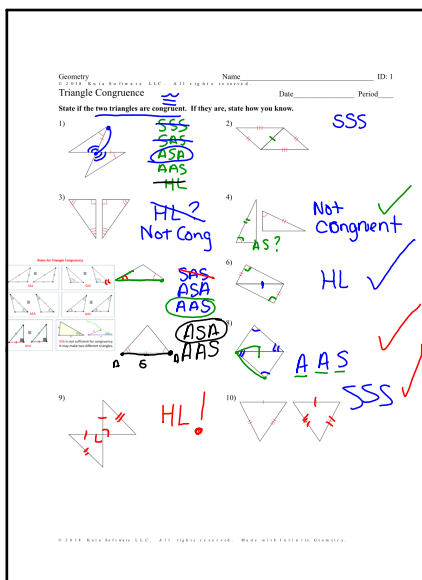 Geometry
Name ID: 1
© 2018 Kuta Software LLC. All rights reserved.
Triangle Congruence
Date Period
≅
State if the two triangles are congruent. If they are, state how you know.
1)
SSS
SAS
ASA
AAS
HL
2)
SSS
3)
HL ?
Not Cong
4)
AS?
Not
Congruent
Rules for Triangle Congruency
SAS
ASA
AAS
6)
HL
is not sufficient for congruency.
It may make two different triangles.
ASA
AAS
6
8)
A A S
9)
HL!
10)
SSS
© 2018 Kuta Software LLC. All rights reserved. Made with Infinite Geometry.